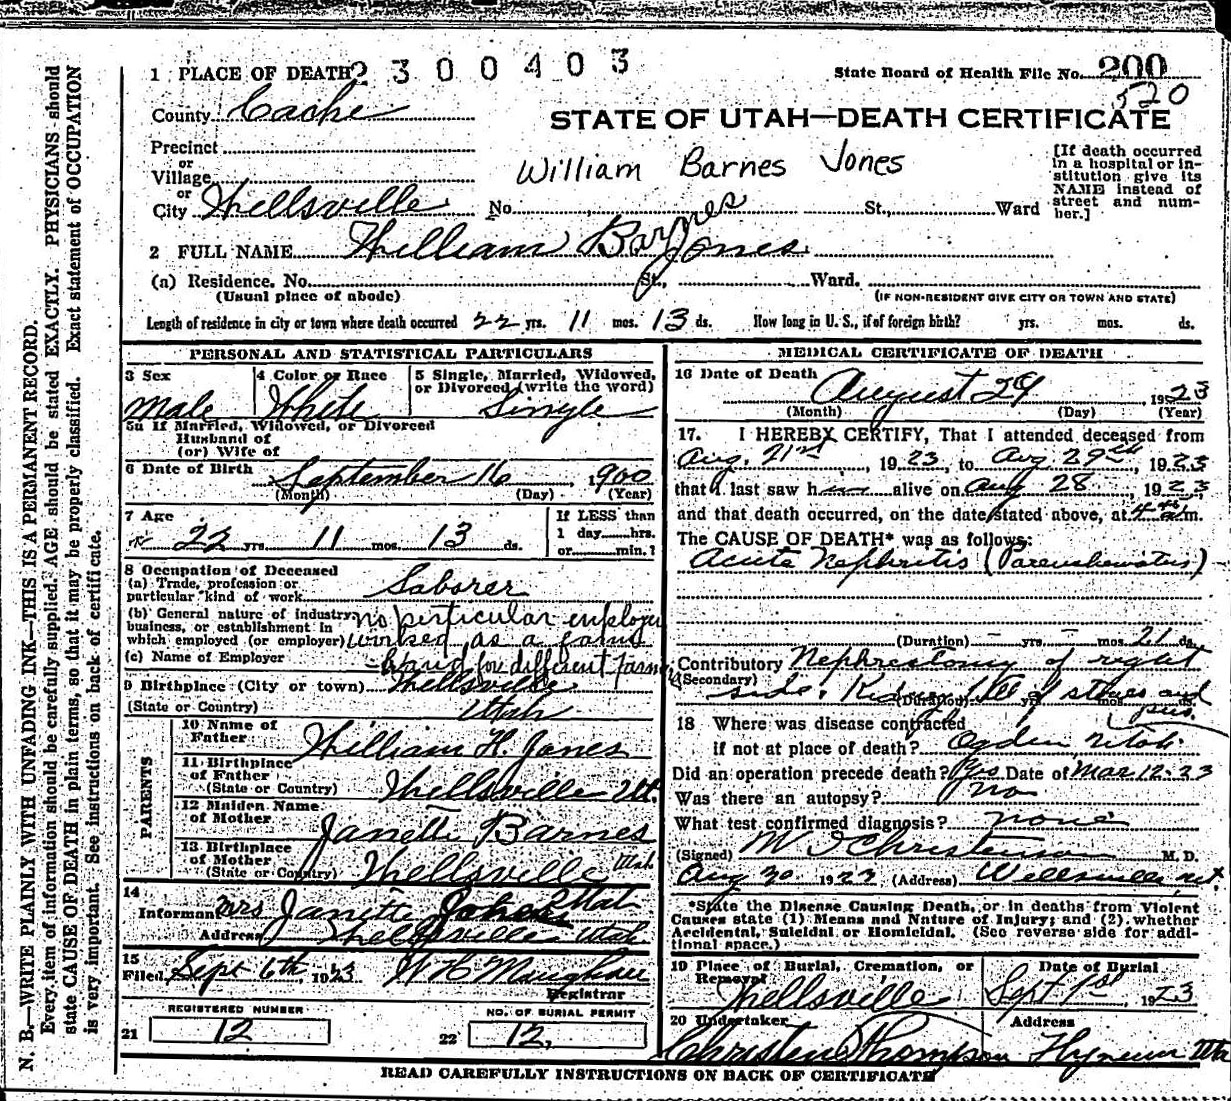 1 PLACE OF DEATH 2300403
State Board of Health File No. 200
520
County Cache
STATE OF UTAH—DEATH CERTIFICATE
Precinct
or
Village
or
City Wellsville No. St., Ward
William Barnes Jones
[If death occurred
in a hospital or in-
stitution give its
NAME instead of
street and num-
ber.]
2 FULL NAME William Barnes Jones
(a) Residence. No. St., Ward.
(Usual place of abode) (IF NON-RESIDENT GIVE CITY OR TOWN AND STATE)
Length of residence in city or town where death occurred 22 yrs. 11 mos. 13 ds. How long in U. S., if of foreign birth? yrs. mos. ds.
PERSONAL AND STATISTICAL PARTICULARS
3 Sex
Male
4 Color or Race
White
5 Single, Married, Widowed,
or Divorced (write the word)
Single
5a If Married, Widowed, or Divorced
Husband of
(or) Wife of
6 Date of Birth
September 16, 1900
(Month) (Day) (Year)
7 Age
22 yrs. 11 mos. 13 ds.
If LESS than
1 day hrs.
or min.?
8 Occupation of Deceased
(a) Trade, profession or
particular kind of work Laborer
(b) General nature of industry,
business, or establishment in
which employed (or employer)
no perticular employer
worked as a farm
(c) Name of Employer
hand for different farms
9 Birthplace (City or town) Wellsville
(State or Country) Utah
PARENTS
10 Name of
Father William H. Jones
11 Birthplace
of Father
(State or Country) Wellsville Ut.
12 Maiden Name
of Mother Janette Barnes
13 Birthplace
of Mother
(State or Country) Wellsville Utah
14
Informant Mrs Janette Jones
Address Wellsville Utah
15
Filed Sept 6th, 1923 W H Maughan
Registrar
REGISTERED NUMBER
21 12
NO. OF BURIAL PERMIT
22 12,
MEDICAL CERTIFICATE OF DEATH
16 Date of Death
August 29 1923
(Month) (Day) (Year)
17. I HEREBY CERTIFY, That I attended deceased from
Aug. 21st, 1923, to Aug 29th, 1923
that I last saw him alive on Aug 28, 1923,
and that death occurred, on the date stated above, at 4 a.m.
The CAUSE OF DEATH* was as follows:
Acute Nephritis
(Duration) yrs. mos. 21 ds.
Contributory Nephrectomy of right
(Secondary)
side. Kidney full of stones and
pus.
(Duration) yrs. mos. ds.
18 Where was disease contracted
if not at place of death? Ogden Utah
Did an operation precede death? Yes Date of Mar. 12-23
Was there an autopsy? no
What test confirmed diagnosis? none
(Signed) M I Christenson M. D.
Aug 30 1923 (Address) Wellsville, Ut.
*State the Disease Causing Death, or in deaths from Violent
Causes state (1) Means and Nature of Injury; and (2) whether
Accidental, Suicidal or Homicidal. (See reverse side for addi-
tional space.)
19 Place of Burial, Cremation, or
Removal
Wellsville
Date of Burial
Sept 1st 1923
20 Undertaker Address
Christen Thompson Hyrum Uta
READ CAREFULLY INSTRUCTIONS ON BACK OF CERTIFICATE
N. B.—WRITE PLAINLY WITH UNFADING INK—THIS IS A PERMANENT RECORD.
Every item of information should be carefully supplied. AGE should be stated EXACTLY. PHYSICIANS should
state CAUSE OF DEATH in plain terms, so that it may be properly classified. Exact statement of OCCUPATION
is very important. See instructions on back of certificate.